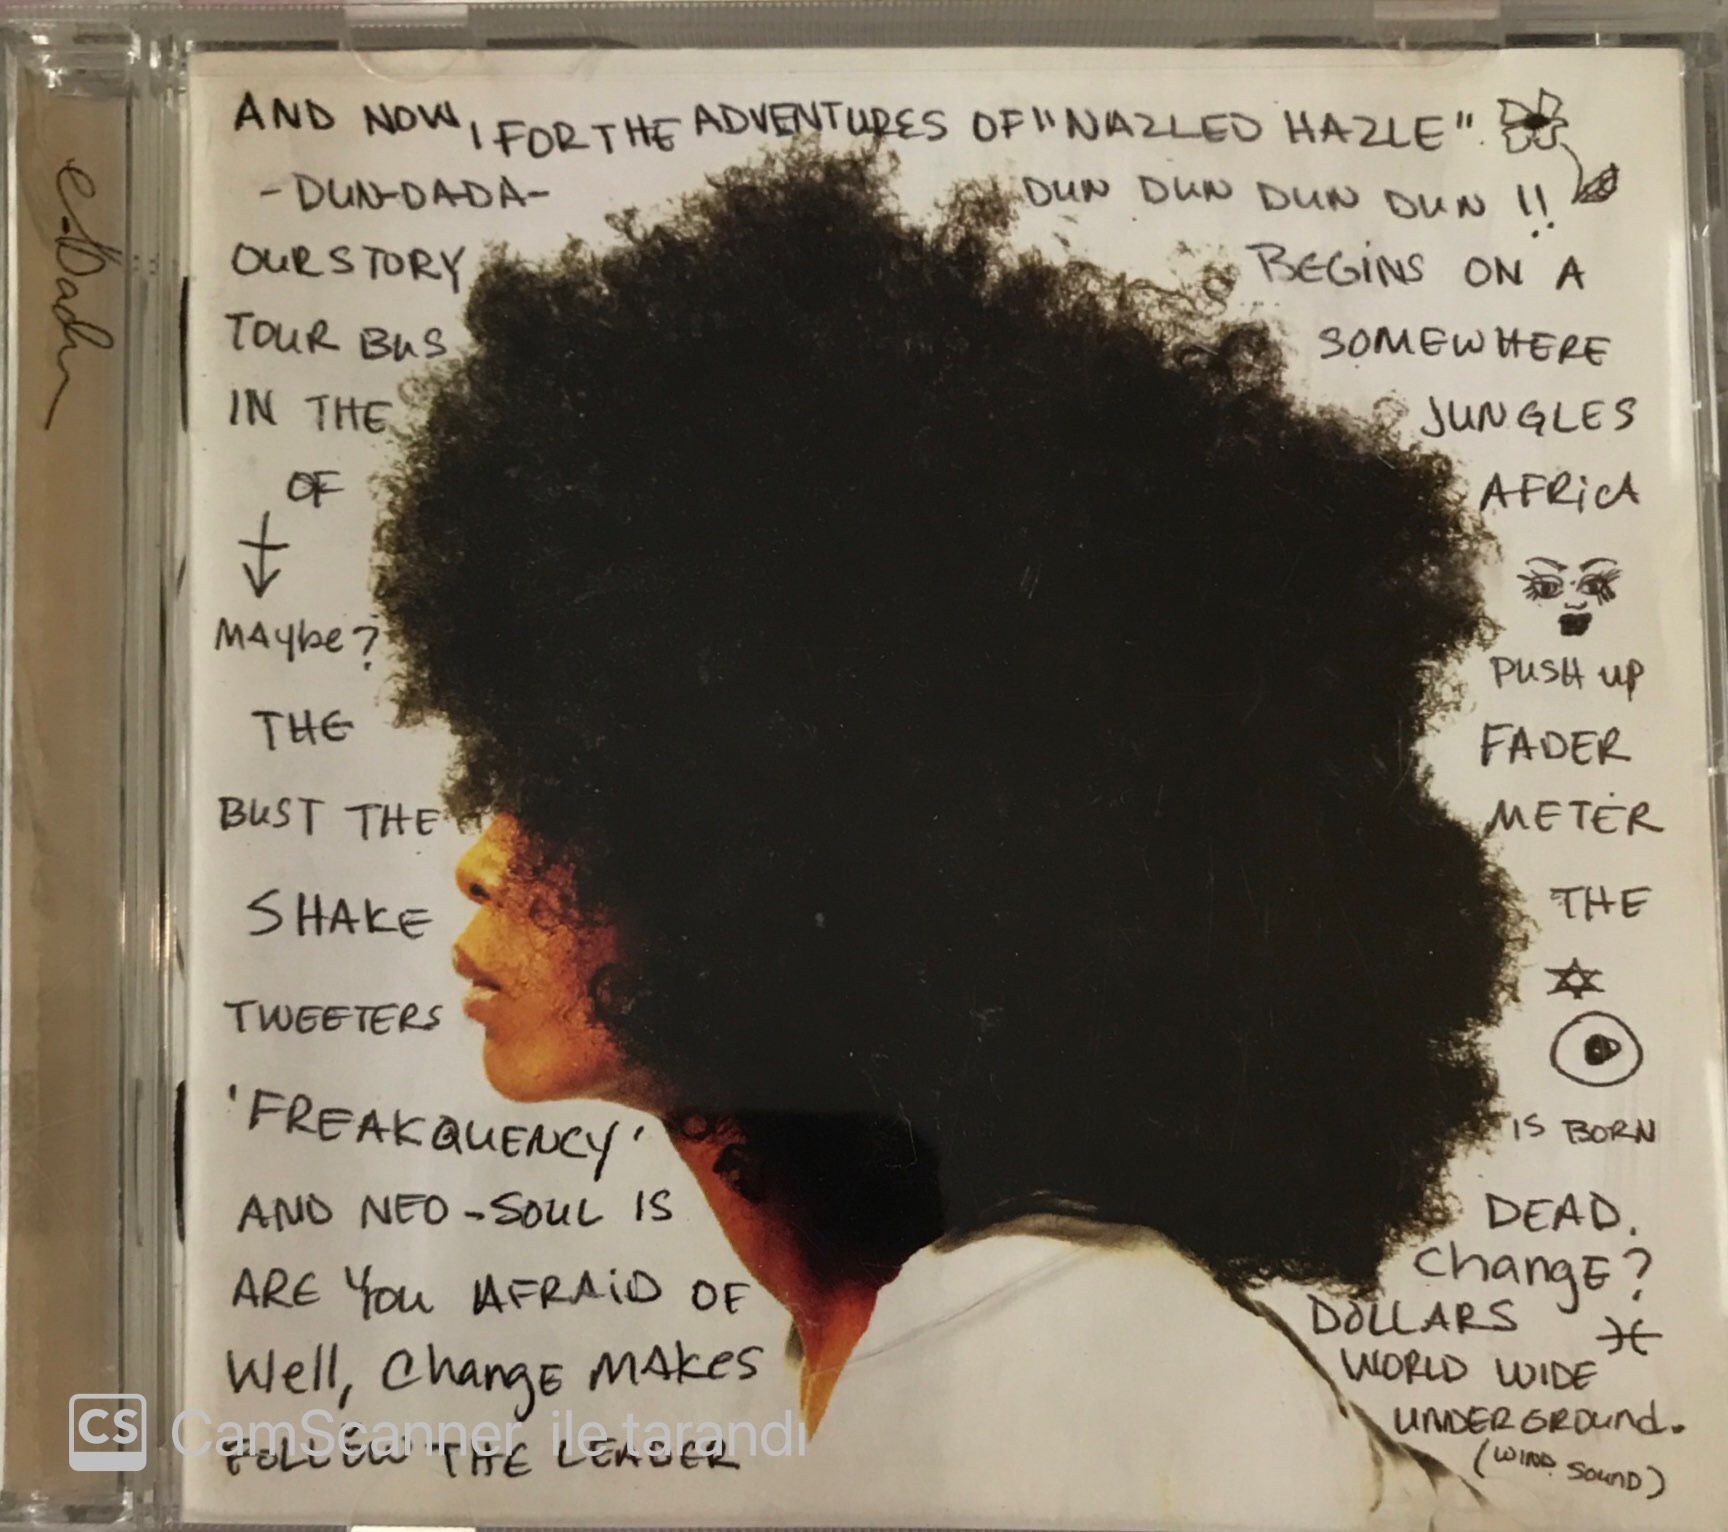 e. Badu
AND NOW, FOR THE ADVENTURES OF "NAZLED HAZLE".
-DUN-DADA- DUN DUN DUN DUN !!
OUR STORY BEGINS ON A
TOUR BUS SOMEWHERE
IN THE JUNGLES
OF AFRICA
MAYbe? PUSH UP
THE FADER
BUST THE METER
SHAKE THE
TWEETERS
'FREAKQUENCY' IS BORN
AND NEO-SOUL IS DEAD.
ARE YOU AFRAID OF ChangE?
Well, ChangE MAKES DOLLARS
FOLLOW THE LEADER WORLD WIDE
UNDERGROUnd.
(WIND SOUND)
CS CamScanner ile tarandı